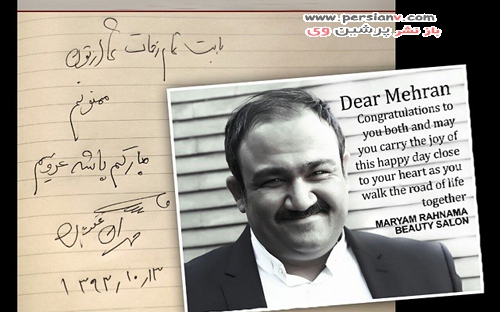 www.persianv.com
باز نشر پرشین وی
بابت تمام زحمات شما ازتون
ممنونم
مبارکم باشه عروسیم
۱۳۹۳/۱۰/۱۳
Dear Mehran
Congratulations to
you both and may
you carry the joy of
this happy day close
to your heart as you
walk the road of life
together
MARYAM RAHNAMA
BEAUTY SALON